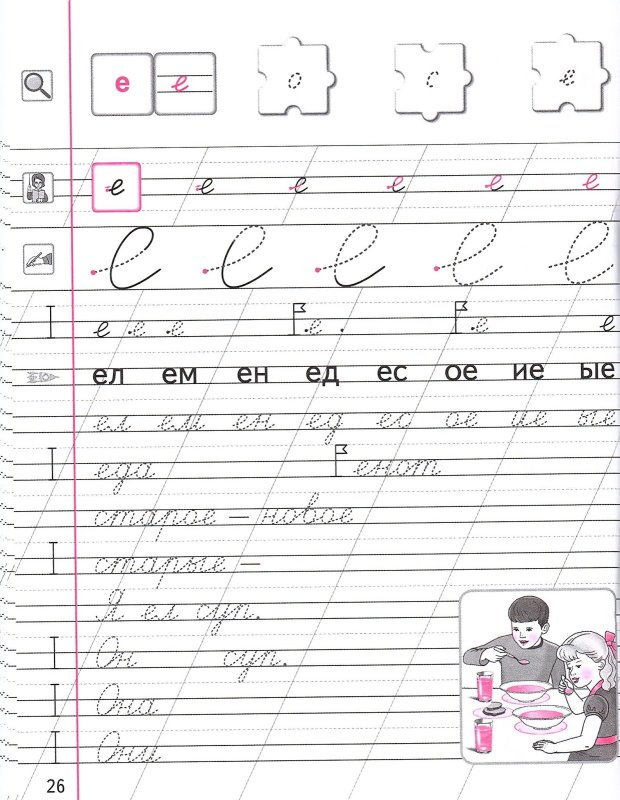 е е о с е
е е е е е е
е е е е е
е е е е . е е
ел ем ен ед ес ое ие ые
ел ем ен ед ес ое ие ые
еда енот
старое — новое
старые —
Я ел суп.
Он суп.
Она
Они
26